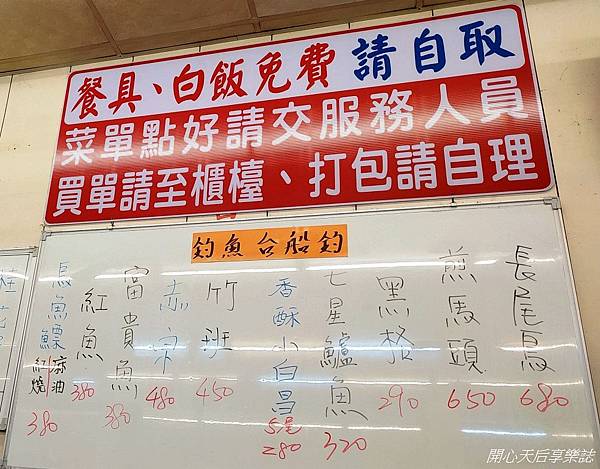 餐具、白飯免費 請自取
菜單點好請交服務人員
買單請至櫃檯、打包請自理
釣魚台船釣
長尾鳥 680
煎馬頭 650
黑格 290
七星鱸魚 320
香酥小白昌 5尾 280
竹班 450
赤宗 480
富貴魚 380
紅魚 380
烏魚鰾 麻油 紅燒 380
開心天后享樂誌